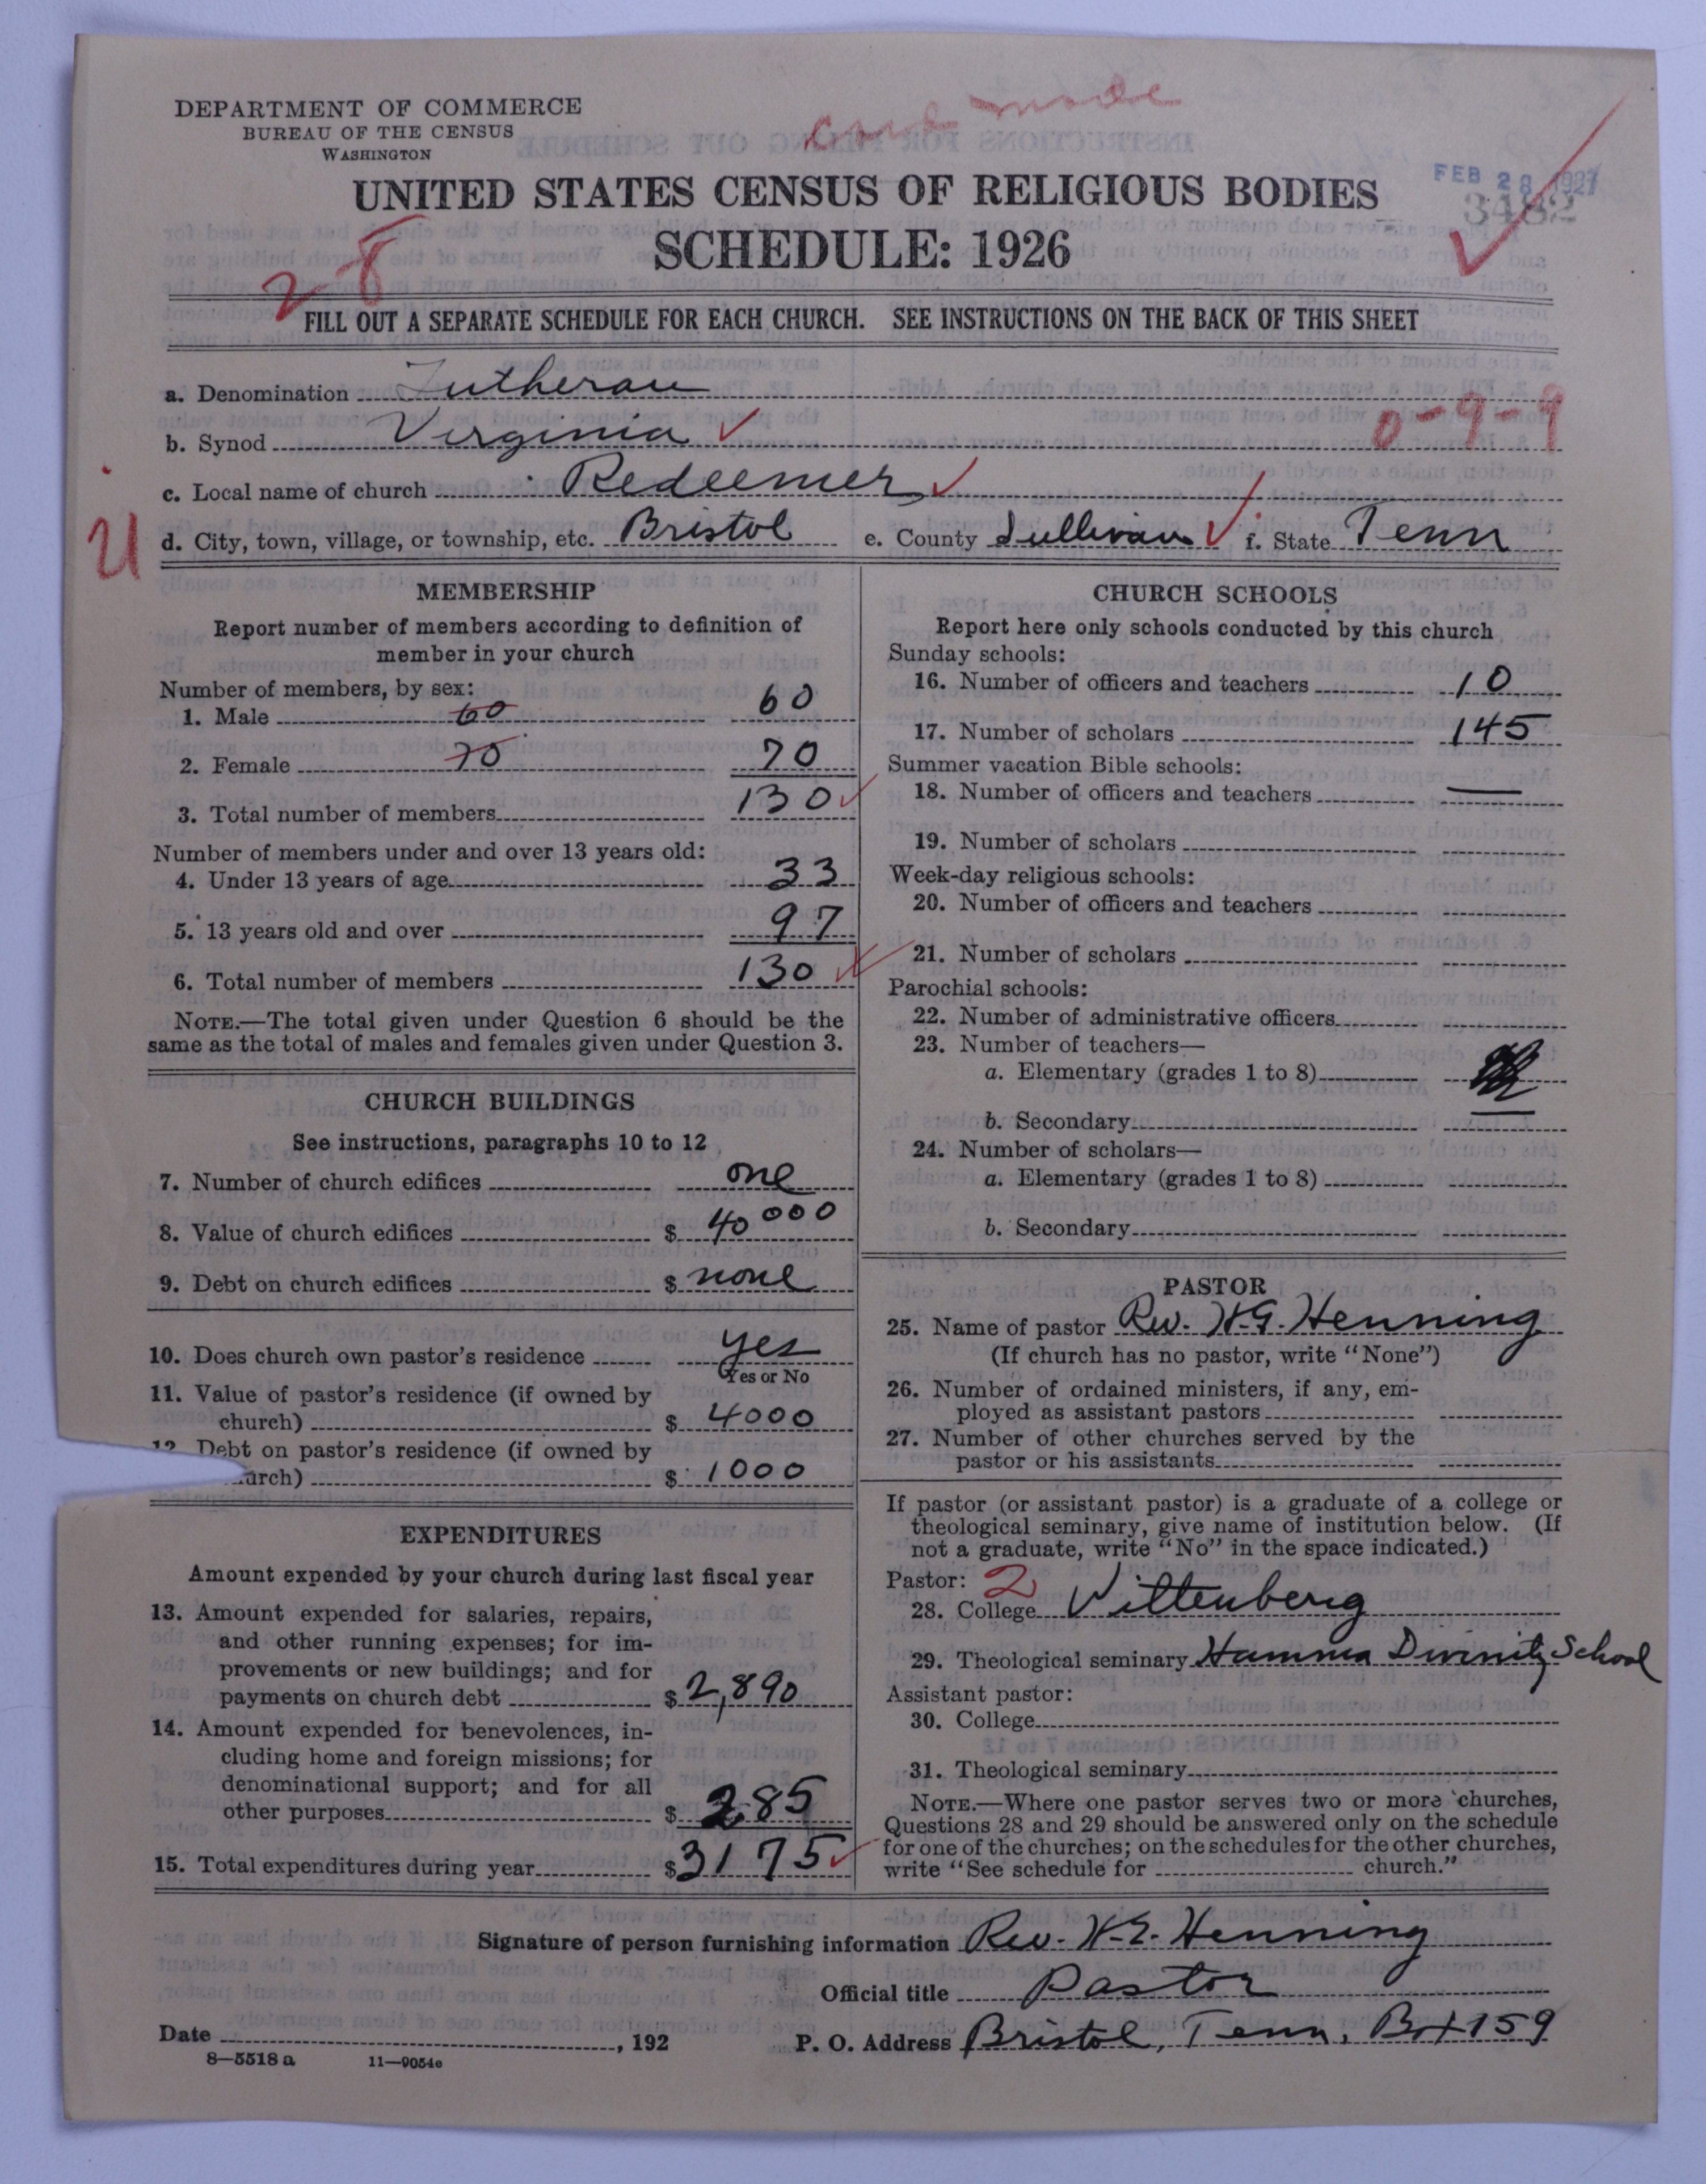 DEPARTMENT OF COMMERCE
BUREAU OF THE CENSUS
WASHINGTON
card made
FEB 28 1927
3482
UNITED STATES CENSUS OF RELIGIOUS BODIES
SCHEDULE: 1926
2-8
FILL OUT A SEPARATE SCHEDULE FOR EACH CHURCH. SEE INSTRUCTIONS ON THE BACK OF THIS SHEET
a. Denomination Lutheran
b. Synod Virginia
0-9-9
c. Local name of church Redeemer
U
d. City, town, village, or township, etc. Bristol e. County Sullivan f. State Tenn
MEMBERSHIP
Report number of members according to definition of
member in your church
Number of members, by sex:
1. Male 60 60
2. Female 70 70
3. Total number of members 130
Number of members under and over 13 years old:
4. Under 13 years of age 33
5. 13 years old and over 97
6. Total number of members 130
NOTE.—The total given under Question 6 should be the
same as the total of males and females given under Question 3.
CHURCH BUILDINGS
See instructions, paragraphs 10 to 12
7. Number of church edifices one
8. Value of church edifices $ 40000
9. Debt on church edifices $ none
10. Does church own pastor's residence yes
Yes or No
11. Value of pastor's residence (if owned by
church) $ 4000
12. Debt on pastor's residence (if owned by
urch) $ 1000
EXPENDITURES
Amount expended by your church during last fiscal year
13. Amount expended for salaries, repairs,
and other running expenses; for im-
provements or new buildings; and for
payments on church debt $ 2,890
14. Amount expended for benevolences, in-
cluding home and foreign missions; for
denominational support; and for all
other purposes $ 285
15. Total expenditures during year $ 3175
CHURCH SCHOOLS
Report here only schools conducted by this church
Sunday schools:
16. Number of officers and teachers 10
17. Number of scholars 145
Summer vacation Bible schools:
18. Number of officers and teachers —
19. Number of scholars
Week-day religious schools:
20. Number of officers and teachers
21. Number of scholars
Parochial schools:
22. Number of administrative officers
23. Number of teachers—
a. Elementary (grades 1 to 8)
b. Secondary —
24. Number of scholars—
a. Elementary (grades 1 to 8)
b. Secondary
PASTOR
25. Name of pastor Rev. H.G. Henning
(If church has no pastor, write "None")
26. Number of ordained ministers, if any, em-
ployed as assistant pastors
27. Number of other churches served by the
pastor or his assistants
If pastor (or assistant pastor) is a graduate of a college or
theological seminary, give name of institution below. (If
not a graduate, write "No" in the space indicated.)
Pastor: 2
28. College Wittenberg
29. Theological seminary Hamma Divinity School
Assistant pastor:
30. College
31. Theological seminary
NOTE.—Where one pastor serves two or more churches,
Questions 28 and 29 should be answered only on the schedule
for one of the churches; on the schedules for the other churches,
write "See schedule for church."
Signature of person furnishing information Rev. H.G. Henning
Official title Pastor
Date , 192 P. O. Address Bristol, Tenn, Box 159
8—5518 a 11—9054e